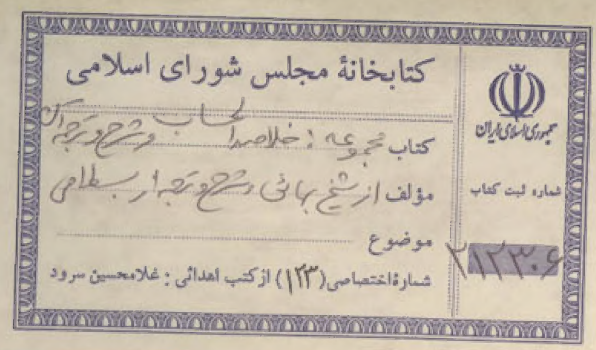 کتابخانهٔ مجلس شورای اسلامی
کتاب مجموعه : خلاصة الحساب و شرح و ترجمه آن
مؤلف از شیخ بهائی و شرح و ترجمه از بسطامی
موضوع
شمارهٔ اختصاصی (۱۲۳) از کتب اهدائی : غلامحسین سرود
جمهوری اسلامی ایران
شماره ثبت کتاب
۲۱۲۳۰۶